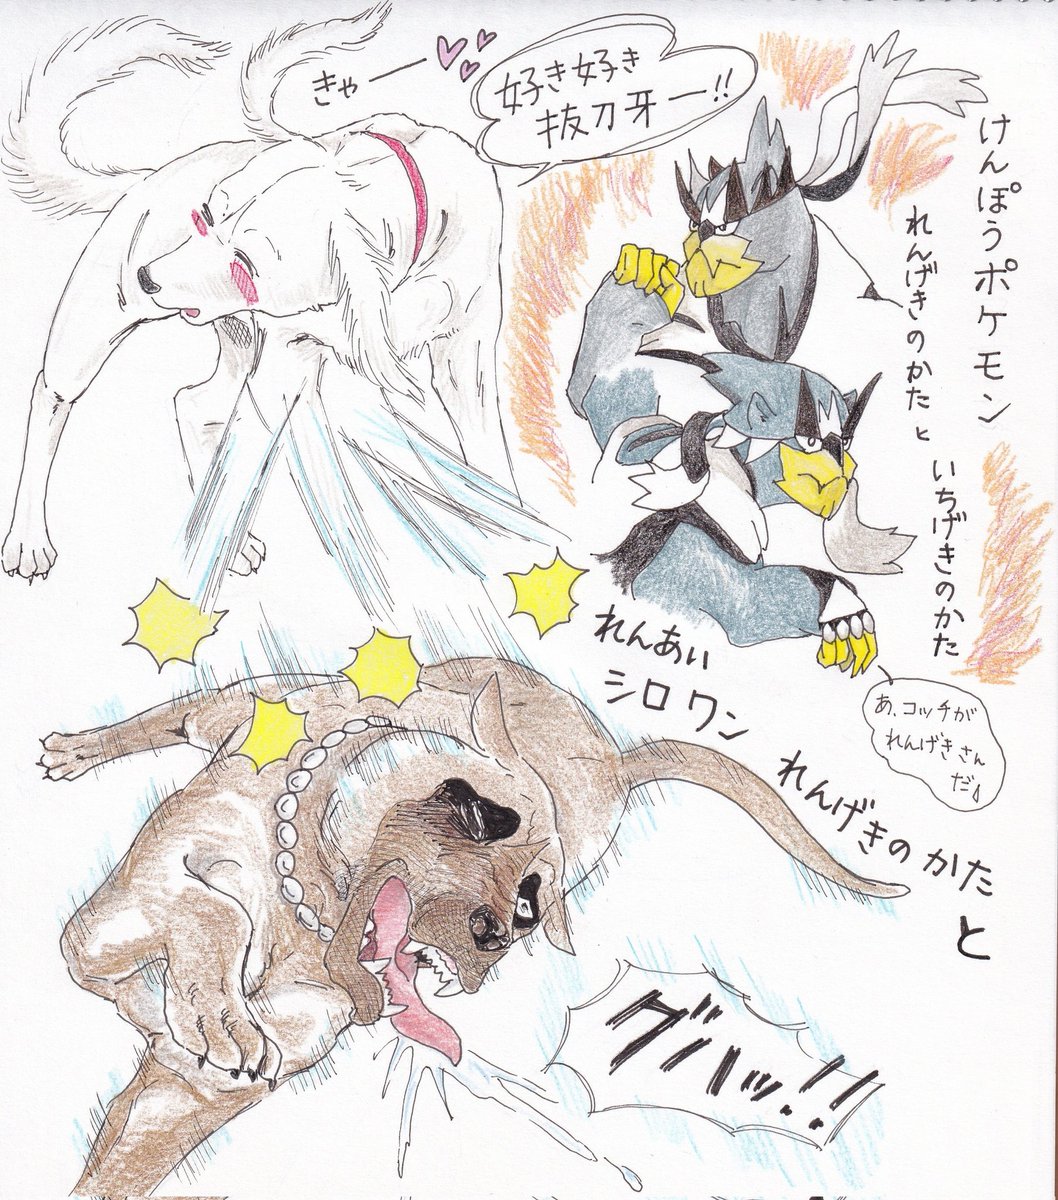 きゃー
好き好き
抜刀牙ー!!
けんぽうポケモン
れんげきのかたと
いちげきのかた
あ、コッチが
れんげきさん
だ♪
れんあい
シロワン
れんげきのかた
と
グハッ!!